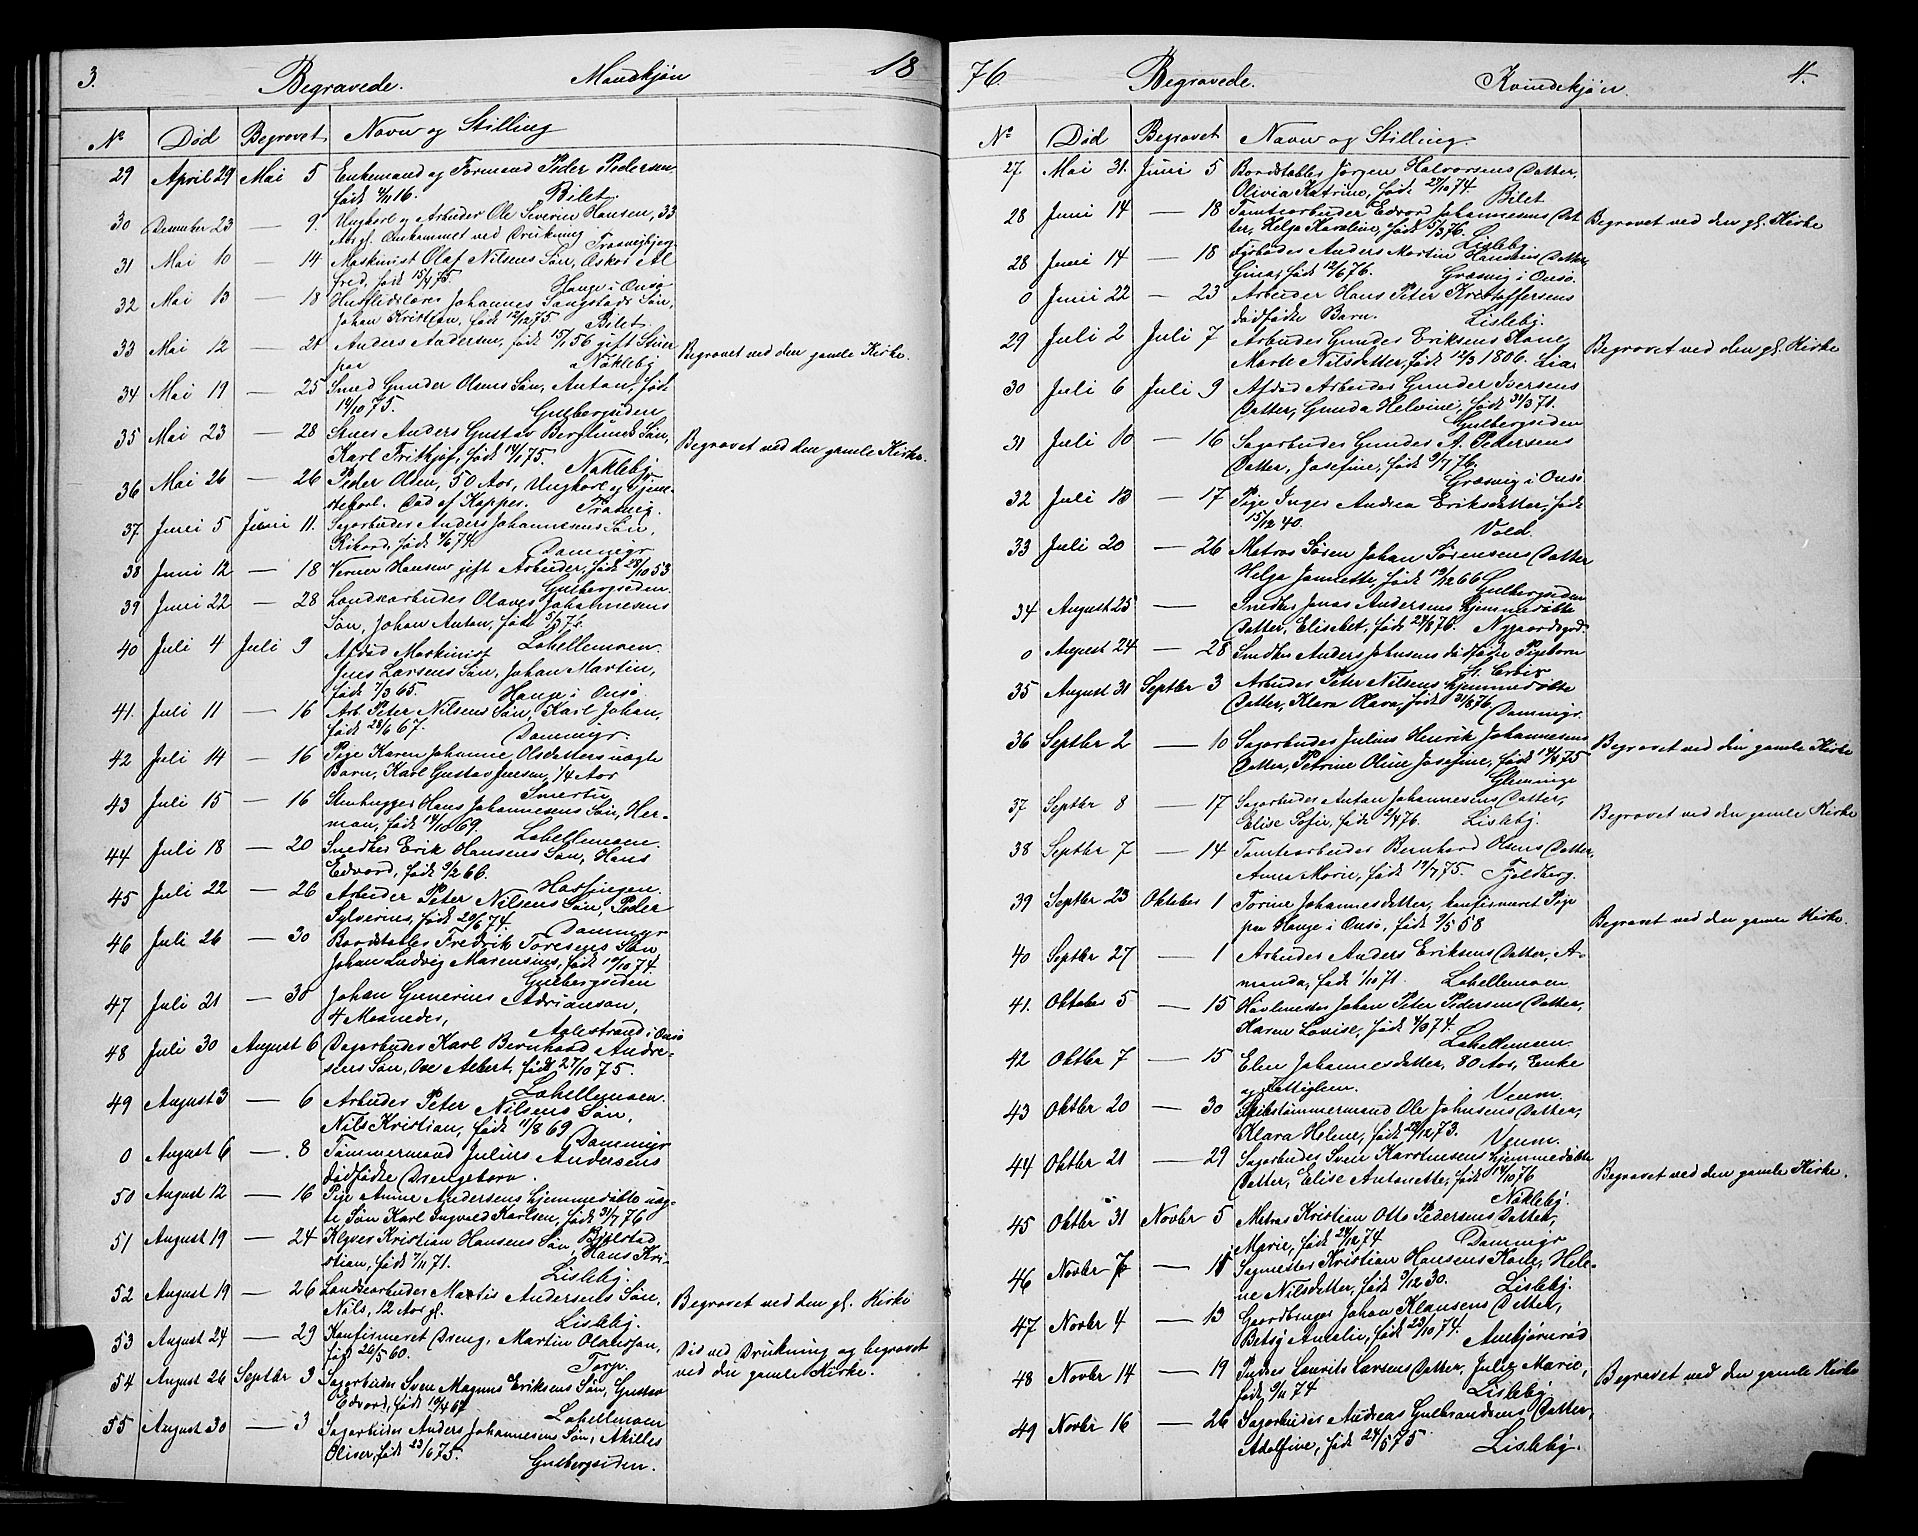 3. Begravede. Mandkjøn 18
No Død Begravet Navn og Stilling
29 April 29 Mai 5 Enkemand og Formand Peder Pedersen
født 4/11 16. Bilet.
30 December 23 — 9. Ungkarl og Arbeider Ole Severin Hansen, 33
Aar gl. Omkommet ved Drukning Trosvigbjerg
31 Mai 10 — 14 Maskinist Olaf Nilsens Søn, Oskar Al
fred, født 15/4 75. Hauge i Onsø
32 Mai 13 — 18 Husflidslærer Johannes Sangstads Søn,
Johan Kristian, født 12/12 75 Bilet.
33 Mai 12 — 21 Anders Andersen, født 15/1 56 gift Stuer Begravet ved den gamle Kirke.
paa Nøkleby
34 Mai 19 — 25 Smed Gunder Olsens Søn, Anton, født
14/10 75. Gulbergsiden
35 Mai 23 — 28 Stuer Anders Gustav Berglunds Søn, Begravet ved den gamle Kirke.
Karl Fritkjøf, født 14/1 75. Nøkleby
36 Mai 26 — 26 Peder Olsen, 50 Aar, Ungkarl og Tjene-
stekarl. Død af Kopper. Trosvig.
37. Juni 5 Juni 11. Sagarbeider Anders Johannesens Søn,
Rikard, født 4/6 74. Dammyr
38 Juni 12 — 18 Verner Hansen gift Arbeider, født 28/10 53
Gulbergsiden.
39 Juni 22 — 28 Landearbeider Olaves Johannesens
Søn, Johan Anton, født 5/3 72.
40 Juli 4 Juli 9 Afdød Maskinist Labellemoen.
Jens Larsens Søn, Johan Martin,
født 7/3 65. Hauge i Onsø
41. Juli 11 — 16 Arb. Peter Nilsens Søn, Karl Johan,
født 28/6 67. Dammyr.
42 Juli 14 — 16 Pige Karen Johanne Olsdatters uægte
Barn, Karl Gustav Jensen, 1/4 Aar
Smertu
43 Juli 15 — 16 Stenhugger Hans Johannesens Søn, Her-
man, født 14/10 69. Labellemoen.
44 Juli 18 — 20 Snedker Erik Hansens Søn, Hans
Edvard, født 9/2 66.
45 Juli 22 — 26 Arbeider Peter Nilsens Søn, Peder
Sylverius, født 20/6 74. Dammyr
46 Juli 26 — 30 Bordstabler Fredrik Toresens Søn
Johan Ludvig Marensius, født 19/10 74.
Gulbergsiden
47 Juli 21 — 30 Johan Gunerius Adrianson,
4 Maaneder, Aalestrand i Onsø
48 Juli 30 August 6 Dagarbeider Karl Bernhard Andre-
sens Søn, Ove Albert. født 27/10 75.
Labellemoen.
49 August 3 — 6 Arbeider Peter Nilsens Søn,
Nils Kristian, født 11/8 69 Dammyr
0 August 6 — 8 Tømmermand Julius Andersens
dødfødte Drengebarn.
50 August 12 — 16 Pige Anne Andersens hjemmedøbte uæg-
te Søn Karl Ingvald Karlsen, født 31/7 76
Bjølstad
51 August 19 — 24 Klyver Kristian Hansens Søn, Hans Kri-
stian, født 7/11 71. Lisleby.
52 August 19 — 26 Landearbeider Martis Andersens Søn, Begravet ved den gl. Kirke
Nils, 12 Aar gl. Lisleby.
53 August 24 — 29 Konfirmeret Dreng, Martin Olausson, Død ved Drukning og begravet
født 26/5 60. Torp. ved den gamle Kirke.
54 August 26 Septbr 3 Sagarbeider Sven Magnus Eriksens Søn, Gustav
Edvard, født 19/4 67 Labellemoen
55 August 30 — 3 Sagarbeider Anders Johannesens Søn, Akilles
Oliser, født 23/6 75. Gulbergsiden.
76. Begravede. Kvindekjøn. 4.
No Død Begravet Navn og Stilling.
27. Mai 31. Juni 5 Bordstabler Jørgen Halvorsens Datter,
Olivia Katrine, født 27/10 74. Bilet
28 Juni 14 — 18 Tomtearbeider Edvard Johannesens Dat Begravet ved den gl. Kirke
ter, Helga Karoline, født 5/3 76. Lisleby
28 Juni 14 — 18 Fyrbøder Anders Martin Hansens Datter
Gina, født 12/6 76. Græsvig i Onsø.
0 Juni 22 — 23 Arbeider Hans Peter Kristoffersens
dødfødte Barn. Lisleby.
29 Juli 2 Juli 7 Arbeider Gunder Eriksens Kone, Begravet ved den gl. Kirke
Marte Nilsdatter, født 12/3 1806. Lia
30 Juli 6 Juli 9 Afdød Arbeider Gunder Iversens
Datter, Gunda Helvine, født 31/3 71.
Gulbergsiden
31 Juli 10 — 16 Sagarbeider Gunder A. Pedersens
Datter, Josefine, født 9/7 76.
Græsvig i Onsø
32 Juli 13 — 17 Pige Inger Andrea Eriksdatter, født
15/12 40. Vold.
33 Juli 20 — 26 Matros Søren Johan Sørensens Datter
Helga Jannette, født 19/12 66 Gulbergsiden
34 August 25 — Snedker Jonas Andersens hjemmedøbte
Datter, Elisabet, født 24/8 76. Nygaardsgd.
0 August 24 — 28 Snedker Anders Johnsens dødfødte Pigebarn
gl.
35 August 31 Septbr 3 Arbeider Peter Nilsens hjemmedøbte
Datter, Klara Olava, født 31/8 76.
Dammyr.
36 Septbr 2 — 10 Sagarbeider Julius Henrik Johannesens Begravet ved den gamle Kirke
Datter, Petrine Oline Josefine, født 14/4 75
Glemminge
37 Septbr 8 — 17 Sagarbeider Anton Johannesens Datter, Begravet ved den gamle Kirke
Elise Sofie, født 2/4 76. Lisleby.
38 Septbr 7 — 14 Tomtearbeider Bernhard Olsens Datter,
Anna Marie, født 19/7 75. Fjeldberg.
39 Septbr 23 Oktober 1 Torine Johannesdatter, konfirmeret Pige Begravet ved den gamle Kirke.
paa Hauge i Onsø, født 9/5 58
40 Septbr 27 — 1 Arbeider Anders Eriksens Datter, A-
manda, født 1/10 71. Labellemoen
41. Oktober 5 — 15 Høvlmester Johan Peter Pedersens Datter,
Karen Lovise, født 4/9 74.
Labellemoen.
42 Oktbr 7 — 15 Elen Johannesdatter, 80 Aar, Enke
og Fattiglem. Veum.
43 Oktbr 20 — 30 Skibstømmermand Ole Johnsens Datter,
Klara Helene, født 28/12 73. Veum.
44 Oktbr 21 — 29 Sagarbeider Sven Karstensens hjemmedøbte Begravet ved den gamle Kirke.
Datter, Elise Antonette, født 14/10 76
Nøkleby.
45 Oktbr 31 Novbr 5 Matros Kristian Otto Pedersens Datter,
Marie, født 24/12 74 Dammyr
46 Novbr 7 — 11 Sagmester Kristian Hansens Kone, Hele-
ne Nilsdatter, født 3/12 30. Lisleby.
47 Novbr 4 — 13 Gaardbruger Johan Klausens Datter,
Betsy Amalie, født 23/10 74. Ambjørnrød
48 Novbr 14 — 19 Pudser Laurits Larsens Datter, Julie Marie, Begravet ved den gamle Kirke
født 9/11 74 Lisleby.
49 Novbr 16 — 26 Sagarbeider Andreas Gulbrandsens Datter,
Adolfine, født 24/5 75 Lisleby.